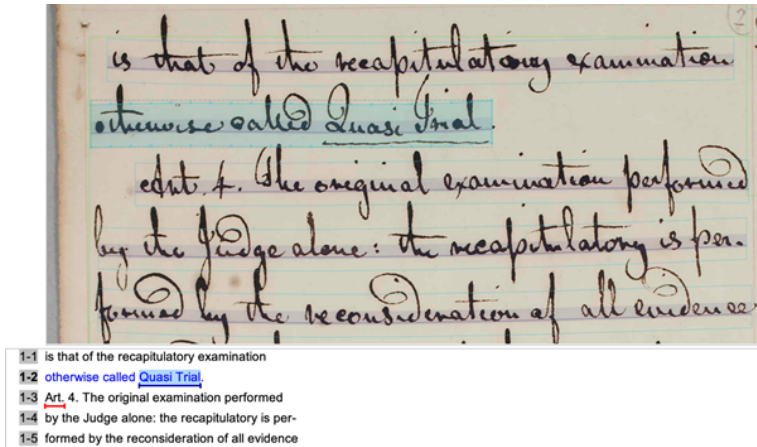 2
is that of the recapitulatory examination
otherwise called Quasi Trial.
Art. 4. The original examination performed
by the Judge alone: the recapitulatory is per-
formed by the reconsideration of all evidence
1-1 is that of the recapitulatory examination
1-2 otherwise called Quasi Trial.
1-3 Art. 4. The original examination performed
1-4 by the Judge alone: the recapitulatory is per-
1-5 formed by the reconsideration of all evidence